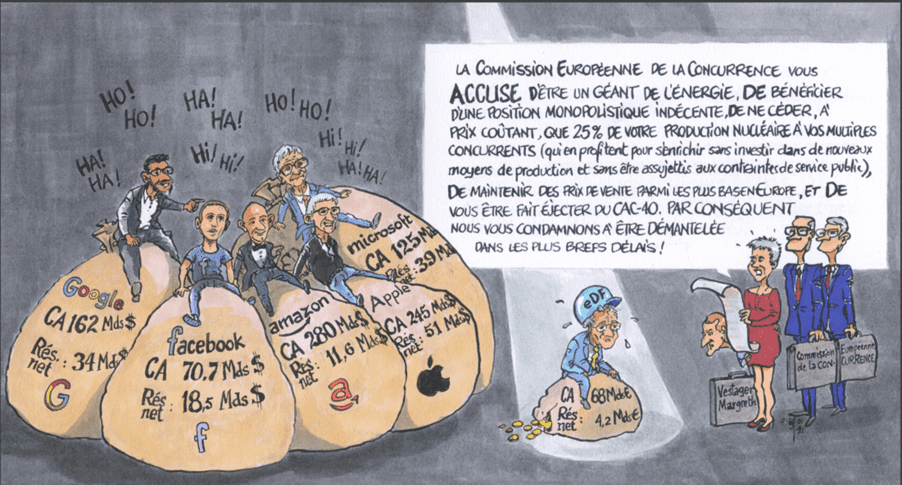 HO!
HO!
HA!
HA!
HO! HO!
HA!
HA!
Hi! Hi!
Hi! Hi!
HA!
HA!
LA COMMISSION EUROPÉENNE DE LA CONCURRENCE VOUS
ACCUSE D'ÊTRE UN GÉANT DE L'ÉNERGIE, DE BÉNÉFICIER
D'UNE POSITION MONOPOLISTIQUE INDÉCENTE, DE NE CÉDER, À
PRIX COÛTANT, QUE 25% DE VOTRE PRODUCTION NUCLÉAIRE À VOS MULTIPLES
CONCURRENTS (qui en profitent pour s'enrichir sans investir dans de nouveaux
moyens de production et sans être assujettis aux contraintes de service public),
DE MAINTENIR DES PRIX DE VENTE PARMI LES PLUS BAS EN EUROPE, ET DE
VOUS ÊTRE FAIT ÉJECTER DU CAC-40. PAR CONSÉQUENT
NOUS VOUS CONDAMNONS À ÊTRE DÉMANTELÉE
DANS LES PLUS BREFS DÉLAIS !
Google
CA 162 Mds $
Rés
net : 34 Mds $
G
facebook
CA 70.7 Mds $
Rés
net : 18,5 Mds $
f
amazon
CA 280 Mds $
Rés
net : 11,6 Mds $
a
Apple
CA 245 Mds $
Rés
net : 51 Mds $
microsoft
CA 125 Md
Rés : 39 Md
eDF
CA 68 Md €
Rés
net : 4,2 Md €
Vestager
Margreth
Commission
de la CON-
Européenne
CURRENCE